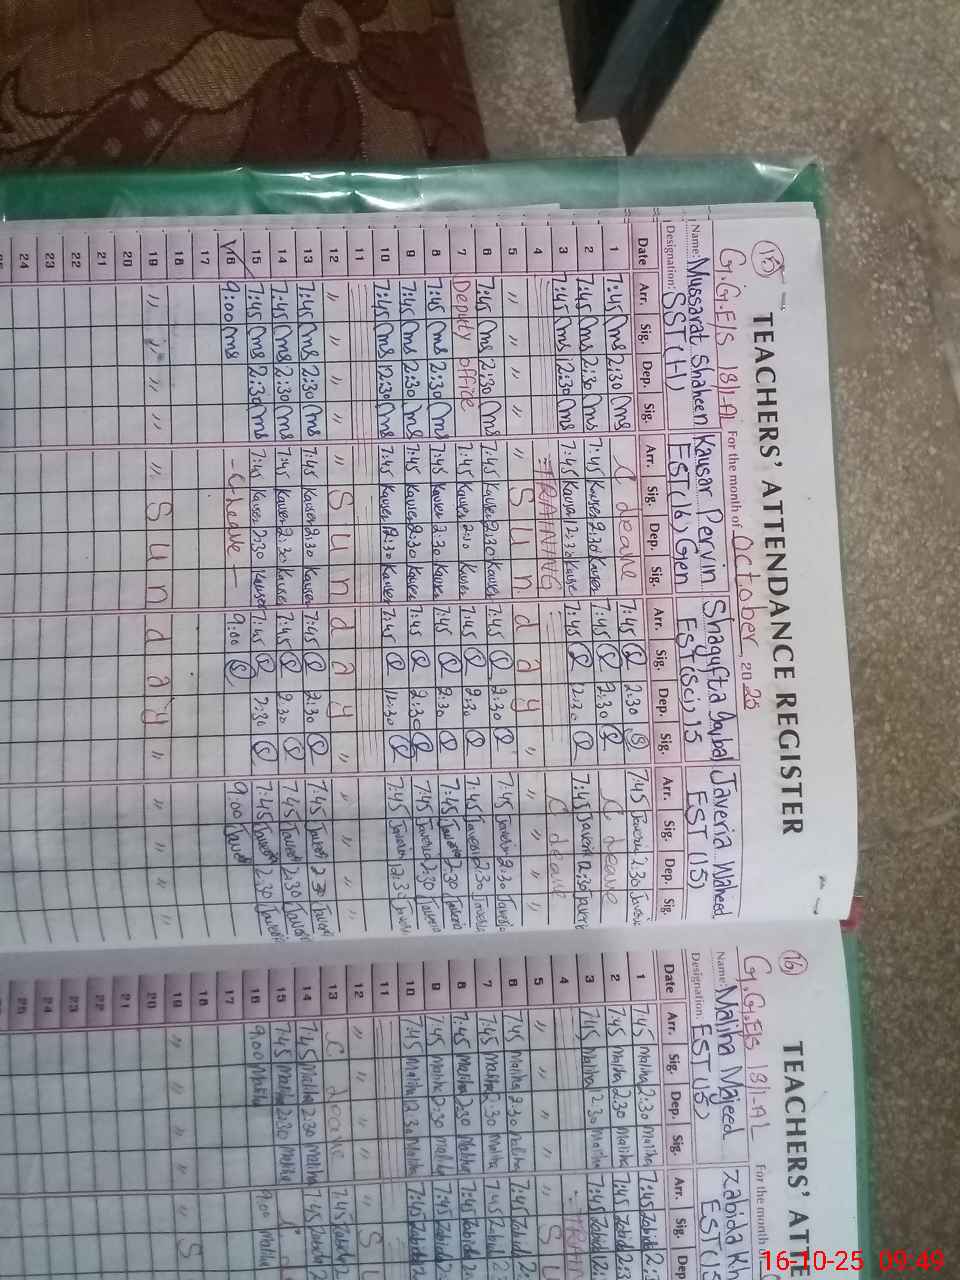 15
TEACHERS' ATTENDANCE REGISTER
G.G.E/S 13/1-AL For the month of October, 2025
Name: Mussarat Shaheen Kausar Pervin Shagufta Iqbal Javeria Waheed
Designation: SST (H) EST (16) Gen EST (Sci) 15 EST (15)
Date Arr. Sig. Dep. Sig. Arr. Sig. Dep. Sig. Arr. Sig. Dep. Sig. Arr. Sig. Dep. Sig.
1 7:45 ms 2:30 ms C leave 7:45 2:30 7:45 Javeria 2:30 Javeria
2 7:45 ms 2:30 ms 7:45 Kauser 2:30 Kauser 7:45 2:30 C leave
3 7:45 ms 12:30 ms 7:45 Kauser 12:30 Kauser 7:45 12:30 7:45 Javeria 12:30 Javeria
4 TRAINING C leave
5 " " " " " S u n d a y " " " " "
6 7:45 ms 2:30 ms 7:45 Kauser 2:30 Kauser 7:45 2:30 7:45 Javeria 2:30 Javeria
7 Deputy office 7:45 Kauser 2:30 Kauser 7:45 2:30 7:45 Javeria 2:30 Javeria
8 7:45 ms 2:30 ms 7:45 Kauser 2:30 Kauser 7:45 2:30 7:45 Javeria 2:30 Javeria
9 7:45 ms 2:30 ms 7:45 Kauser 2:30 Kauser 7:45 2:30 7:45 Javeria 2:30 Javeria
10 7:45 ms 12:30 ms 7:45 Kauser 12:30 Kauser 7:45 12:30 7:45 Javeria 12:30 Javeria
11
12 " " " " " S u n d a y " " " " "
13 7:45 ms 2:30 ms 7:45 Kauser 2:30 Kauser 7:45 2:30 7:45 Javeria 2:30 Javeria
14 7:45 ms 2:30 ms 7:45 Kauser 2:30 Kauser 7:45 2:30 7:45 Javeria 2:30 Javeria
15 7:45 ms 2:30 ms 7:45 Kauser 2:30 Kauser 7:45 2:30 7:45 Javeria 2:30 Javeria
16 9:00 ms - C-leave - 9:00 9:00
17
18
19 " " " " " S u n d a y " " " "
20
21
22
23
24
16
TEACHERS' ATTE
G.G.E/S 13/1-AL For the month
Name: Maliha Majeed Zabida Kh
Designation: EST (15) EST (15
Date Arr. Sig. Dep. Sig. Arr. Sig. Dep
1 7:45 Maliha 2:30 Maliha 7:45 Zabida 2:3
2 7:45 Maliha 2:30 Maliha 7:45 Zabida 2:3
3 7:45 Maliha 2:30 Maliha 7:45 Zabida 12:
4 TRAI
5 " " " " " S u
6 7:45 Maliha 2:30 Maliha 7:45 Zabida 2:
7 7:45 Maliha 2:30 Maliha 7:45 Zabida 2
8 7:45 Maliha 2:30 Maliha 7:45 Zabida 2
9 7:45 Maliha 2:30 Maliha 7:45 Zabida 2
10 7:45 Maliha 12:30 Maliha 7:45 Zabida
11
12 " " " " " S
13 C leave 7:45 Zabida
14 7:45 Maliha 2:30 Maliha 7:45 2
15 7:45 Maliha 2:30 Maliha
16 9:00 Maliha 9:00
17
18
19 " " " " " S
20
21
22
23
24
25
16-10-25 09:49